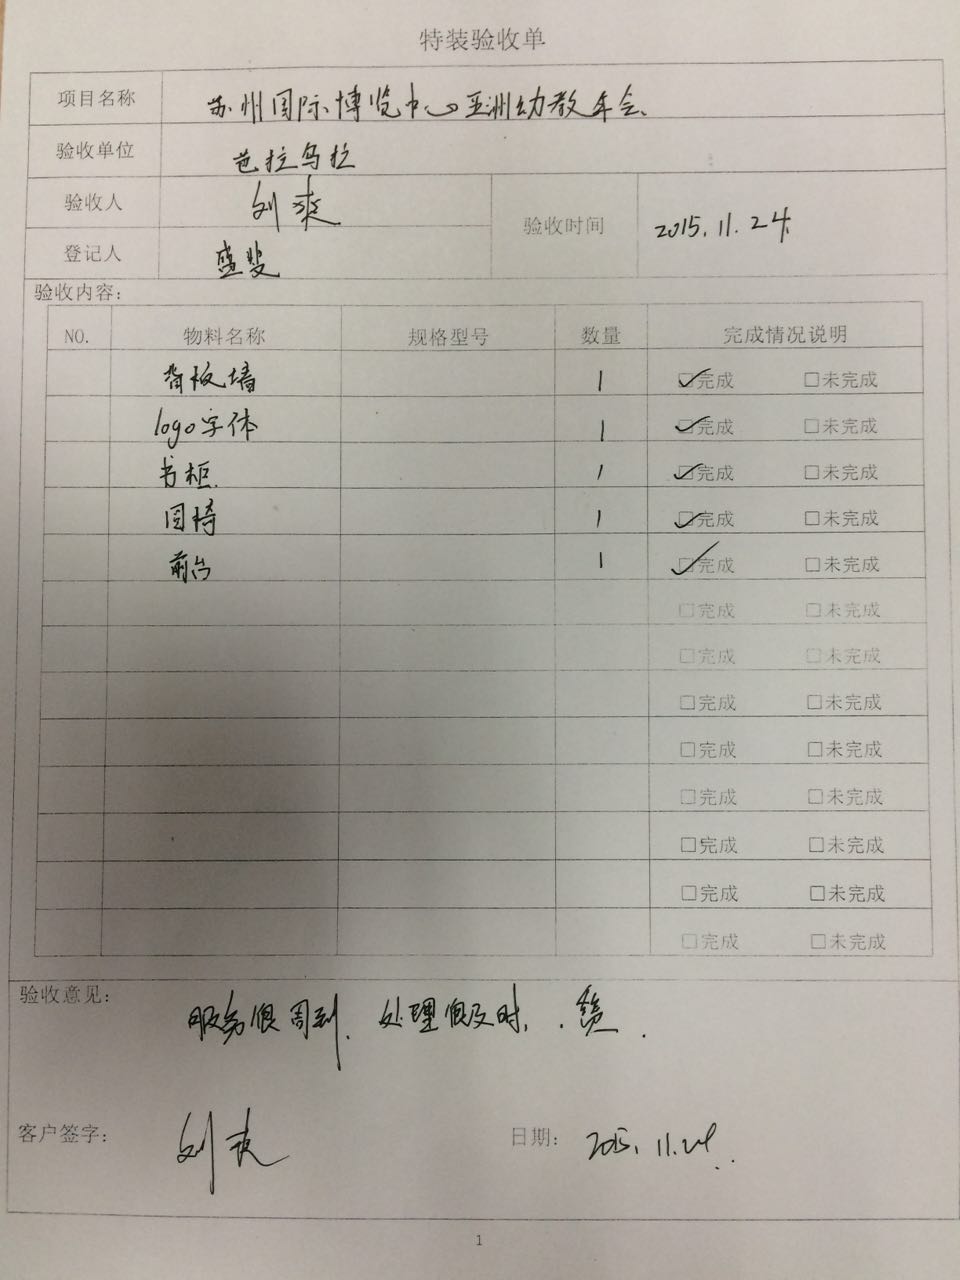 特装验收单
项目名称 苏州国际博览中心亚洲幼教年会
验收单位 芭拉乌拉
验收人 刘爽
验收时间 2015.11.24.
登记人 盛斐
验收内容：
NO. 物料名称 规格型号 数量 完成情况说明
背板墙 1 ☑完成 □未完成
logo字体 1 ☑完成 □未完成
书柜. 1 ☑完成 □未完成
园椅 1 ☑完成 □未完成
前台 1 ☑完成 □未完成
□完成 □未完成
□完成 □未完成
□完成 □未完成
□完成 □未完成
□完成 □未完成
□完成 □未完成
□完成 □未完成
□完成 □未完成
验收意见：
服务很周到. 处理很及时.
客户签字： 刘爽 日期： 2015.11.24
1